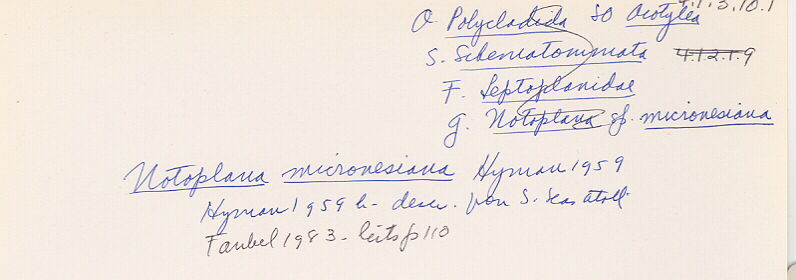 4.1.3.10.1
O. Polycladida SO Acotylea
S. Schematommata 4.1.2.1.9
F. Leptoplanidae
g. Notoplana sp. micronesiana
Notoplana micronesiana Hyman 1959
Hyman 1959 b- descr. from S. Seas atoll
Faubel 1983- lists p 110